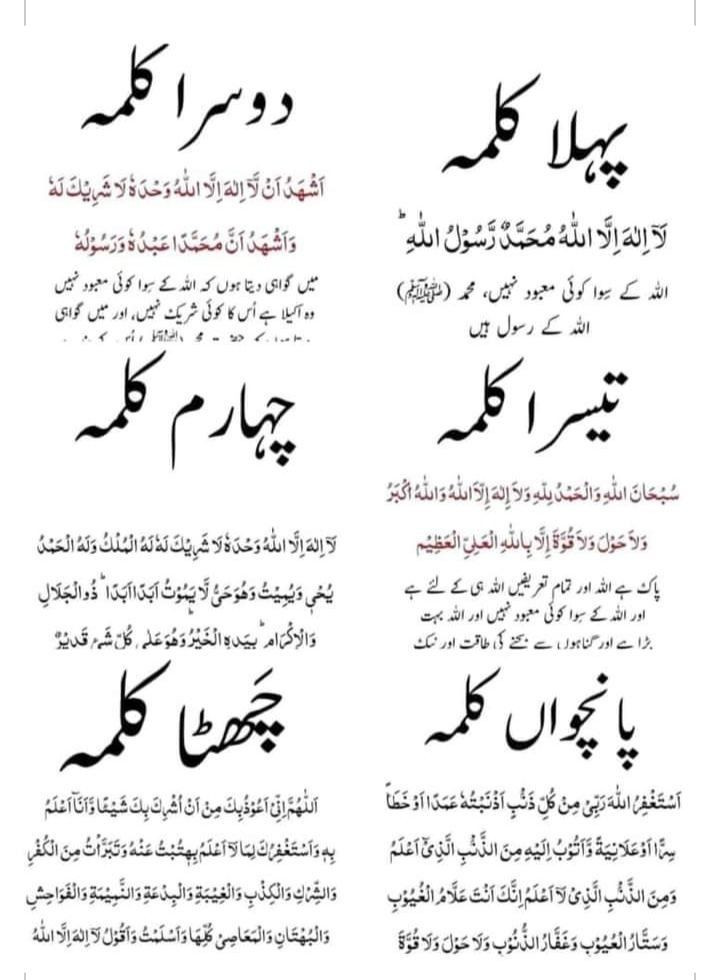 پہلا کلمہ
لَآ اِلٰهَ اِلَّا اللهُ مُحَمَّدٌ رَّسُوْلُ اللهِ ؕ
اللہ کے سِوا کوئی معبود نہیں، محمد (ﷺ)
اللہ کے رسول ہیں
دوسرا کلمہ
اَشْهَدُ اَنْ لَّآ اِلٰهَ اِلَّا اللهُ وَحْدَهٗ لَا شَرِيْكَ لَهٗ
وَاَشْهَدُ اَنَّ مُحَمَّدًا عَبْدُهٗ وَرَسُوْلُهٗ
میں گواہی دیتا ہوں کہ اللہ کے سِوا کوئی معبود نہیں
وہ اکیلا ہے اُس کا کوئی شریک نہیں، اور میں گواہی
تیسرا کلمہ
سُبْحَانَ اللهِ وَالْحَمْدُ لِلّٰهِ وَلَآ اِلٰهَ اِلَّا اللهُ وَاللهُ اَكْبَرُ
وَلَا حَوْلَ وَلَا قُوَّةَ اِلَّا بِاللهِ الْعَلِيِّ الْعَظِيْمِ
پاک ہے اللہ اور تمام تعریفیں اللہ ہی کے لئے ہے
اور اللہ کے سِوا کوئی معبود نہیں اور اللہ بہت
بڑا ہے اور گناہوں سے بچنے کی طاقت اور نیک
چہارم کلمہ
لَآ اِلٰهَ اِلَّا اللهُ وَحْدَهٗ لَا شَرِيْكَ لَهٗ لَهُ الْمُلْكُ وَلَهُ الْحَمْدُ
يُحْيٖ وَيُمِيْتُ وَهُوَحَيٌّ لَّا يَمُوْتُ اَبَدًا اَبَدًا ؕ ذُوالْجَلَالِ
وَالْاِكْرَامِ ؕ بِيَدِهِ الْخَيْرُ ؕ وَهُوَعَلٰى كُلِّ شَيْءٍ قَدِيْرٌ
پانچواں کلمہ
اَسْتَغْفِرُ اللهَ رَبِّيْ مِنْ كُلِّ ذَنْۢبٍ اَذْنَبْتُهٗ عَمَدًا اَوْ خَطَأً
سِرًّا اَوْ عَلَانِيَةً وَّاَتُوْبُ اِلَيْهِ مِنَ الذَّنْۢبِ الَّذِيْٓ اَعْلَمُ
وَمِنَ الذَّنْۢبِ الَّذِيْ لَآ اَعْلَمُ اِنَّكَ اَنْتَ عَلَّامُ الْغُيُوْبِ
وَسَتَّارُ الْعُيُوْبِ وَغَفَّارُ الذُّنُوْبِ وَلَا حَوْلَ وَلَا قُوَّةَ
چَھٹا کلمہ
اَللّٰهُمَّ اِنِّيْٓ اَعُوْذُ بِكَ مِنْ اَنْ اُشْرِكَ بِكَ شَيْئًا وَّاَنَآ اَعْلَمُ
بِهٖ وَاَسْتَغْفِرُكَ لِمَا لَآ اَعْلَمُ بِهٖ تُبْتُ عَنْهُ وَتَبَرَّأْتُ مِنَ الْكُفْرِ
وَالشِّرْكِ وَالْكِذْبِ وَالْغِيْبَةِ وَالْبِدْعَةِ وَالنَّمِيْمَةِ وَالْفَوَاحِشِ
وَالْبُهْتَانِ وَالْمَعَاصِيْ كُلِّهَا وَاَسْلَمْتُ وَاَقُوْلُ لَآ اِلٰهَ اِلَّا اللهُ